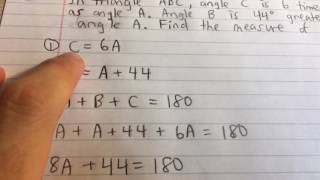 In triangle ABC, angle C is 6 time
as angle A. Angle B is 44° greate
angle A. Find the measure of
① C = 6A
= A + 44
+ B + C = 180
A + A + 44 + 6A = 180
8A + 44 = 180